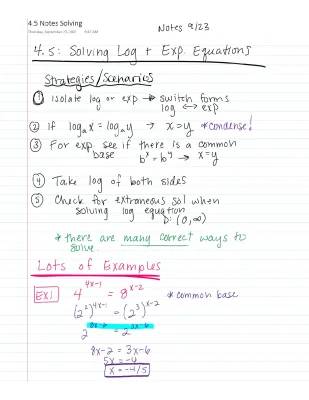 4.5 Notes Solving
Notes 9/23
4.5: Solving Log + Exp. Equations
Strategies/Scenarios
① Isolate log or exp → switch forms
log ↔ exp
② If logₐx = logₐy → x=y *condense!
③ For exp. see if there is a common
base bˣ = bʸ → x=y
④ Take log of both sides
⑤ Check for extraneous sol when
solving log equation
D: (0,∞)
*there are many correct ways to
solve.
Lots of Examples
EX1 4^(4x-1) = 8^(x-2) *common base
(2²)^(4x-1) = (2³)^(x-2)
2^(8x-2) = 2^(3x-6)
8x-2 = 3x-6
5x = -4
x = -4/5